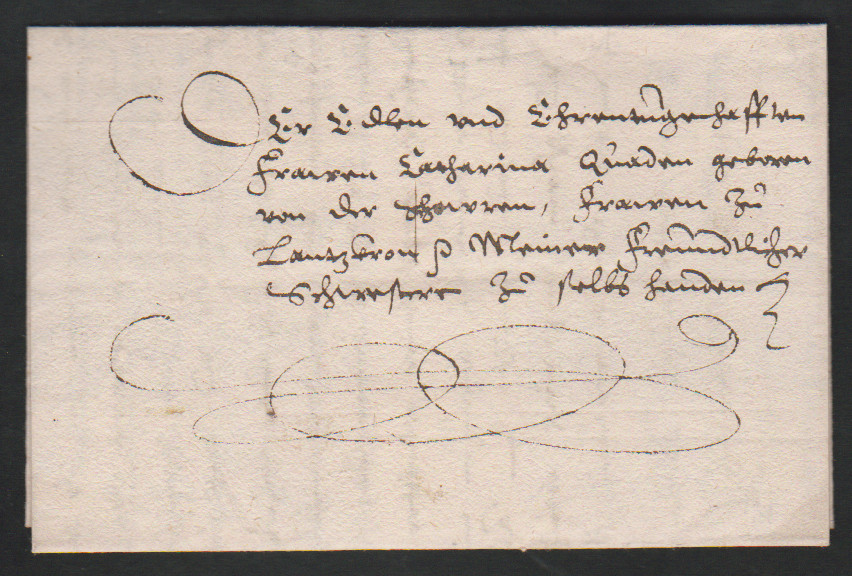 Der Edlen vnd Ehrentugenhafften
Frawen Catharina Quaden geboren
von der Horren, Frawen Zů
Lantzkron p Meiner Freundtlicher
Schwester Zů selbs handen